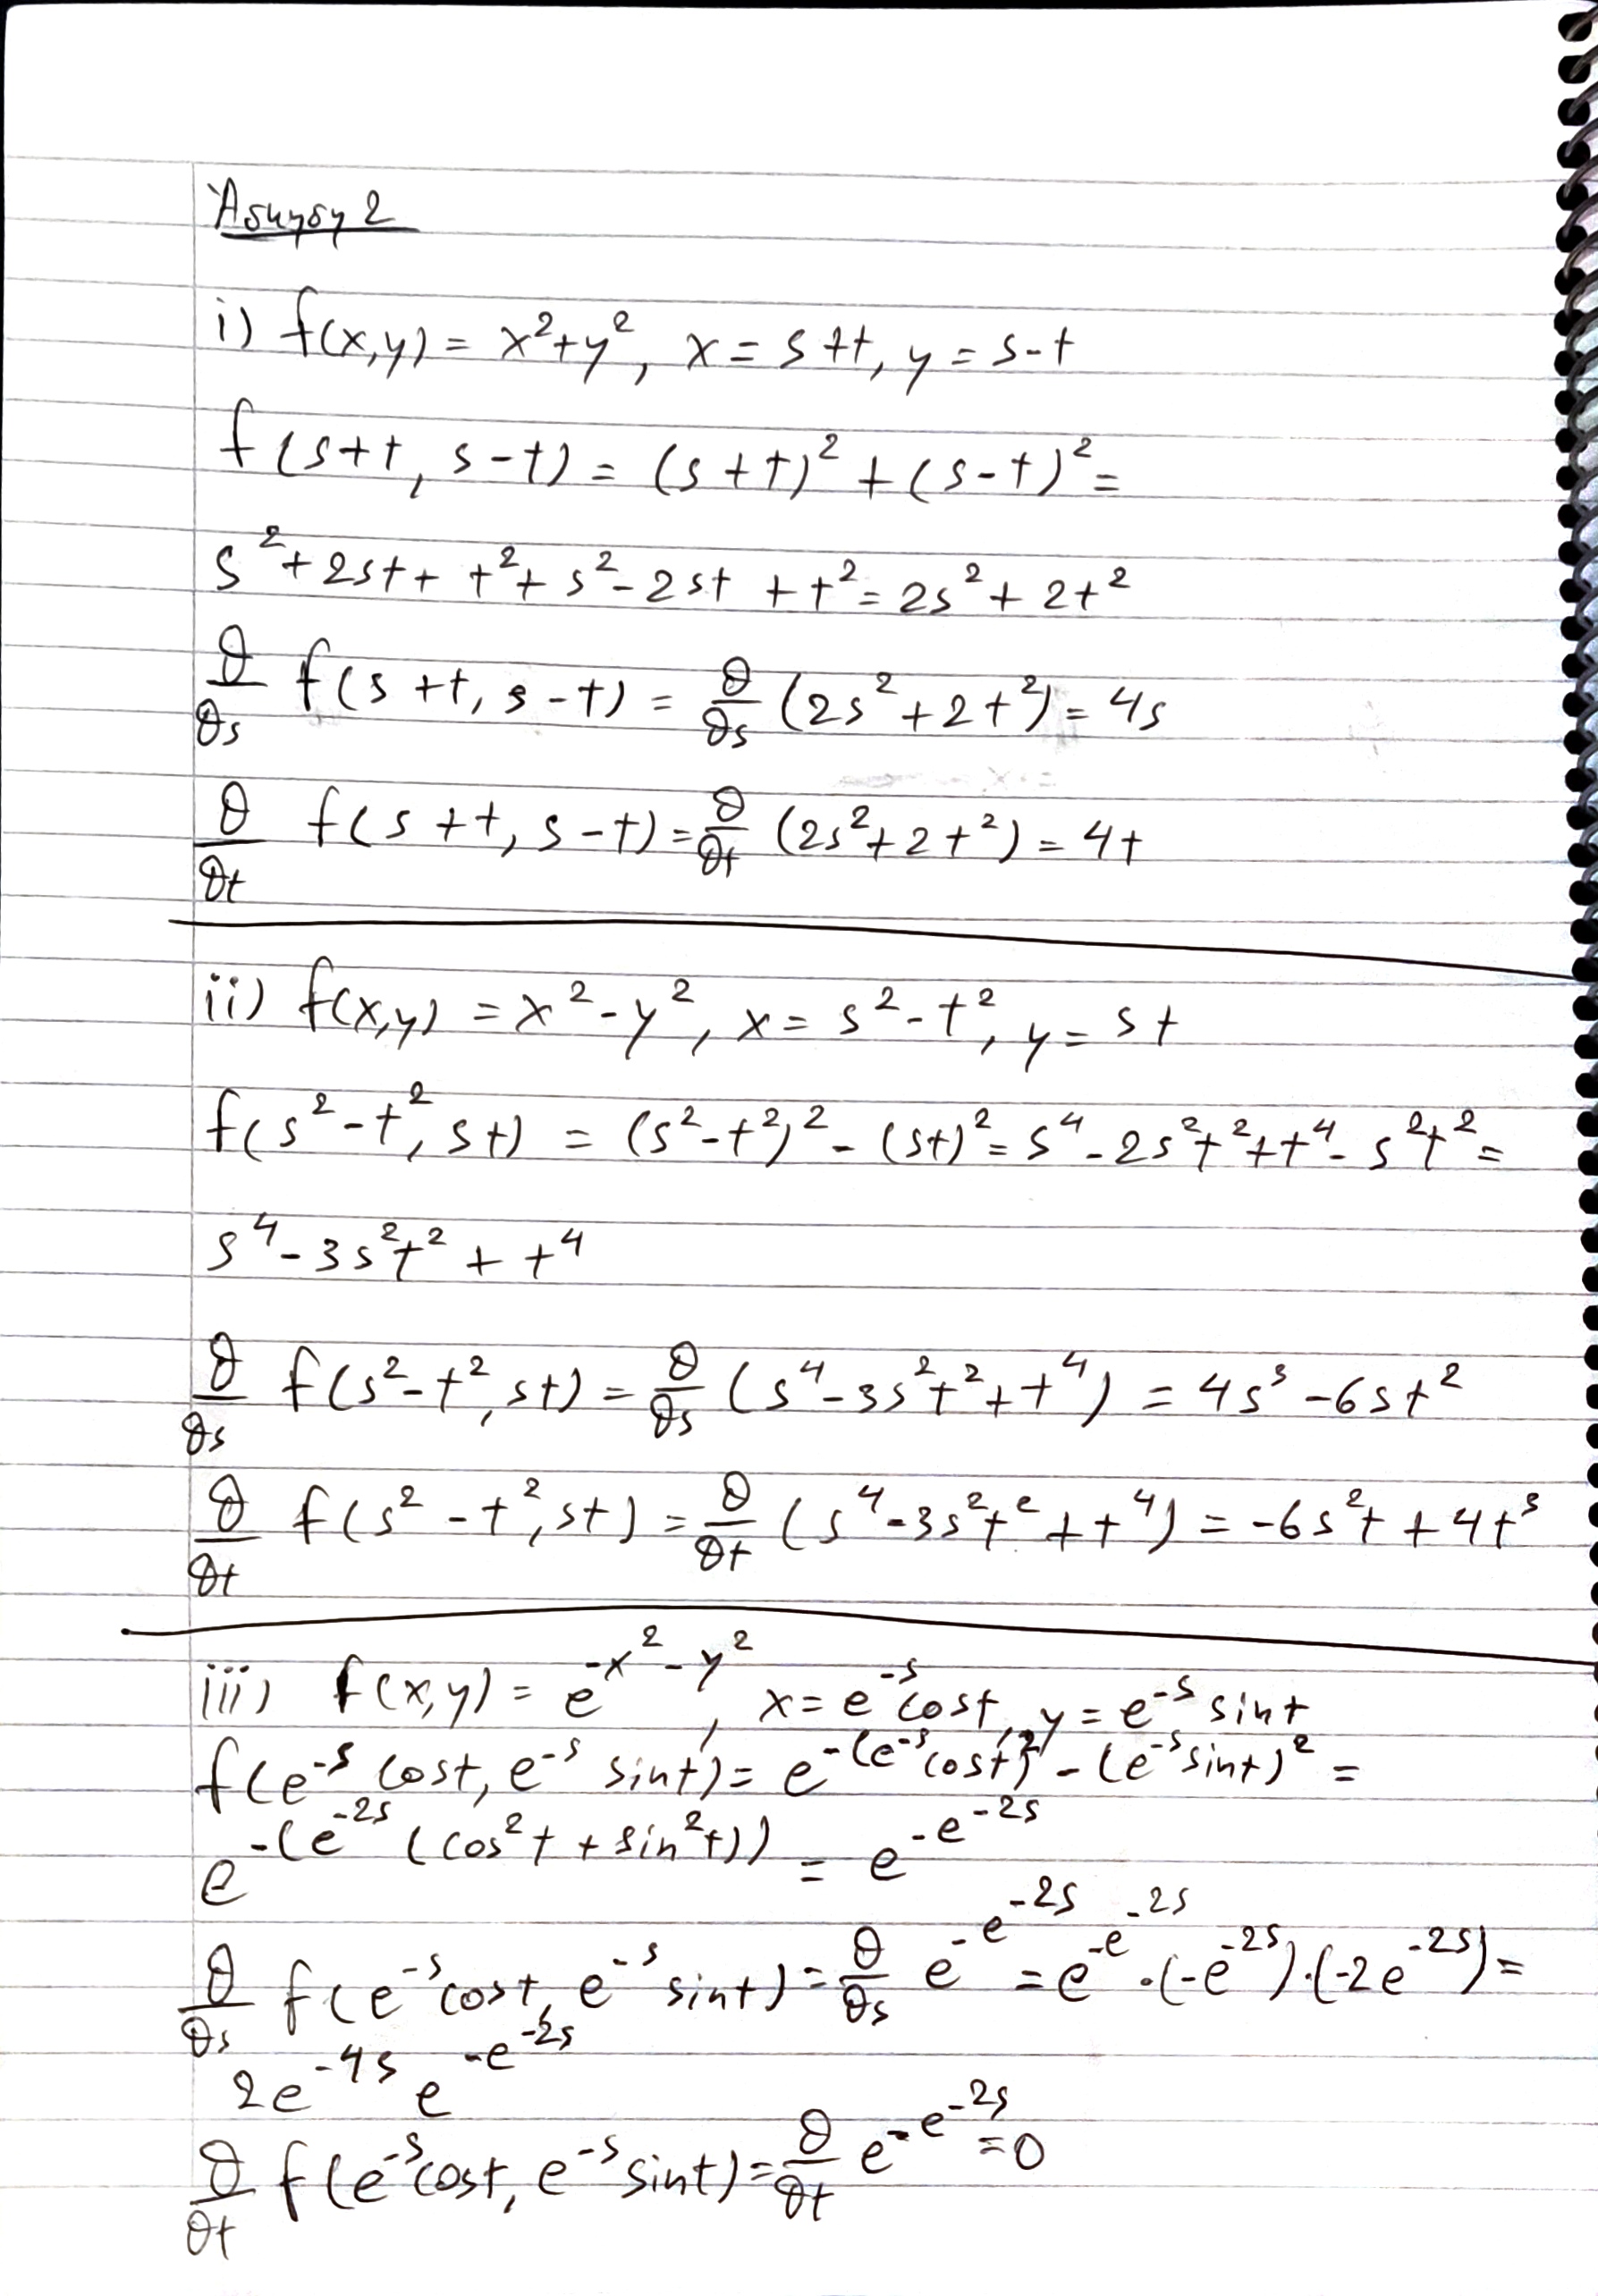 Άσκηση 2
i) f(x,y) = x²+y², x = s+t, y = s-t
f(s+t, s-t) = (s+t)² + (s-t)² =
s²+2st+t²+s²-2st+t² = 2s²+2t²
∂/∂s f(s+t, s-t) = ∂/∂s (2s²+2t²) = 4s
∂/∂t f(s+t, s-t) = ∂/∂t (2s²+2t²) = 4t
ii) f(x,y) = x²-y², x = s²-t², y = st
f(s²-t², st) = (s²-t²)² - (st)² = s⁴-2s²t²+t⁴-s²t² =
s⁴-3s²t²+t⁴
∂/∂s f(s²-t², st) = ∂/∂s (s⁴-3s²t²+t⁴) = 4s³-6st²
∂/∂t f(s²-t², st) = ∂/∂t (s⁴-3s²t²+t⁴) = -6s²t+4t³
iii) f(x,y) = e^(-x²-y²), x = e^(-s) cost, y = e^(-s) sint
f(e^(-s) cost, e^(-s) sint) = e^(-(e^(-s) cost)² - (e^(-s) sint)²) =
e^(-(e^(-2s) (cos²t + sin²t))) = e^(-e^(-2s))
∂/∂s f(e^(-s) cost, e^(-s) sint) = ∂/∂s e^(-e^(-2s)) = e^(-e^(-2s)) · (-e^(-2s)) · (-2e^(-2s)) =
2e^(-4s) e^(-e^(-2s))
∂/∂t f(e^(-s) cost, e^(-s) sint) = ∂/∂t e^(-e^(-2s)) = 0